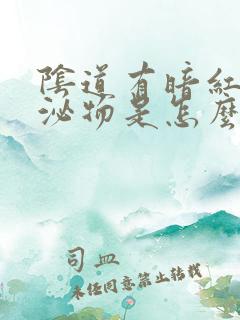 陰道有暗紅
泌物是怎麼
司血
未经同意禁止转载